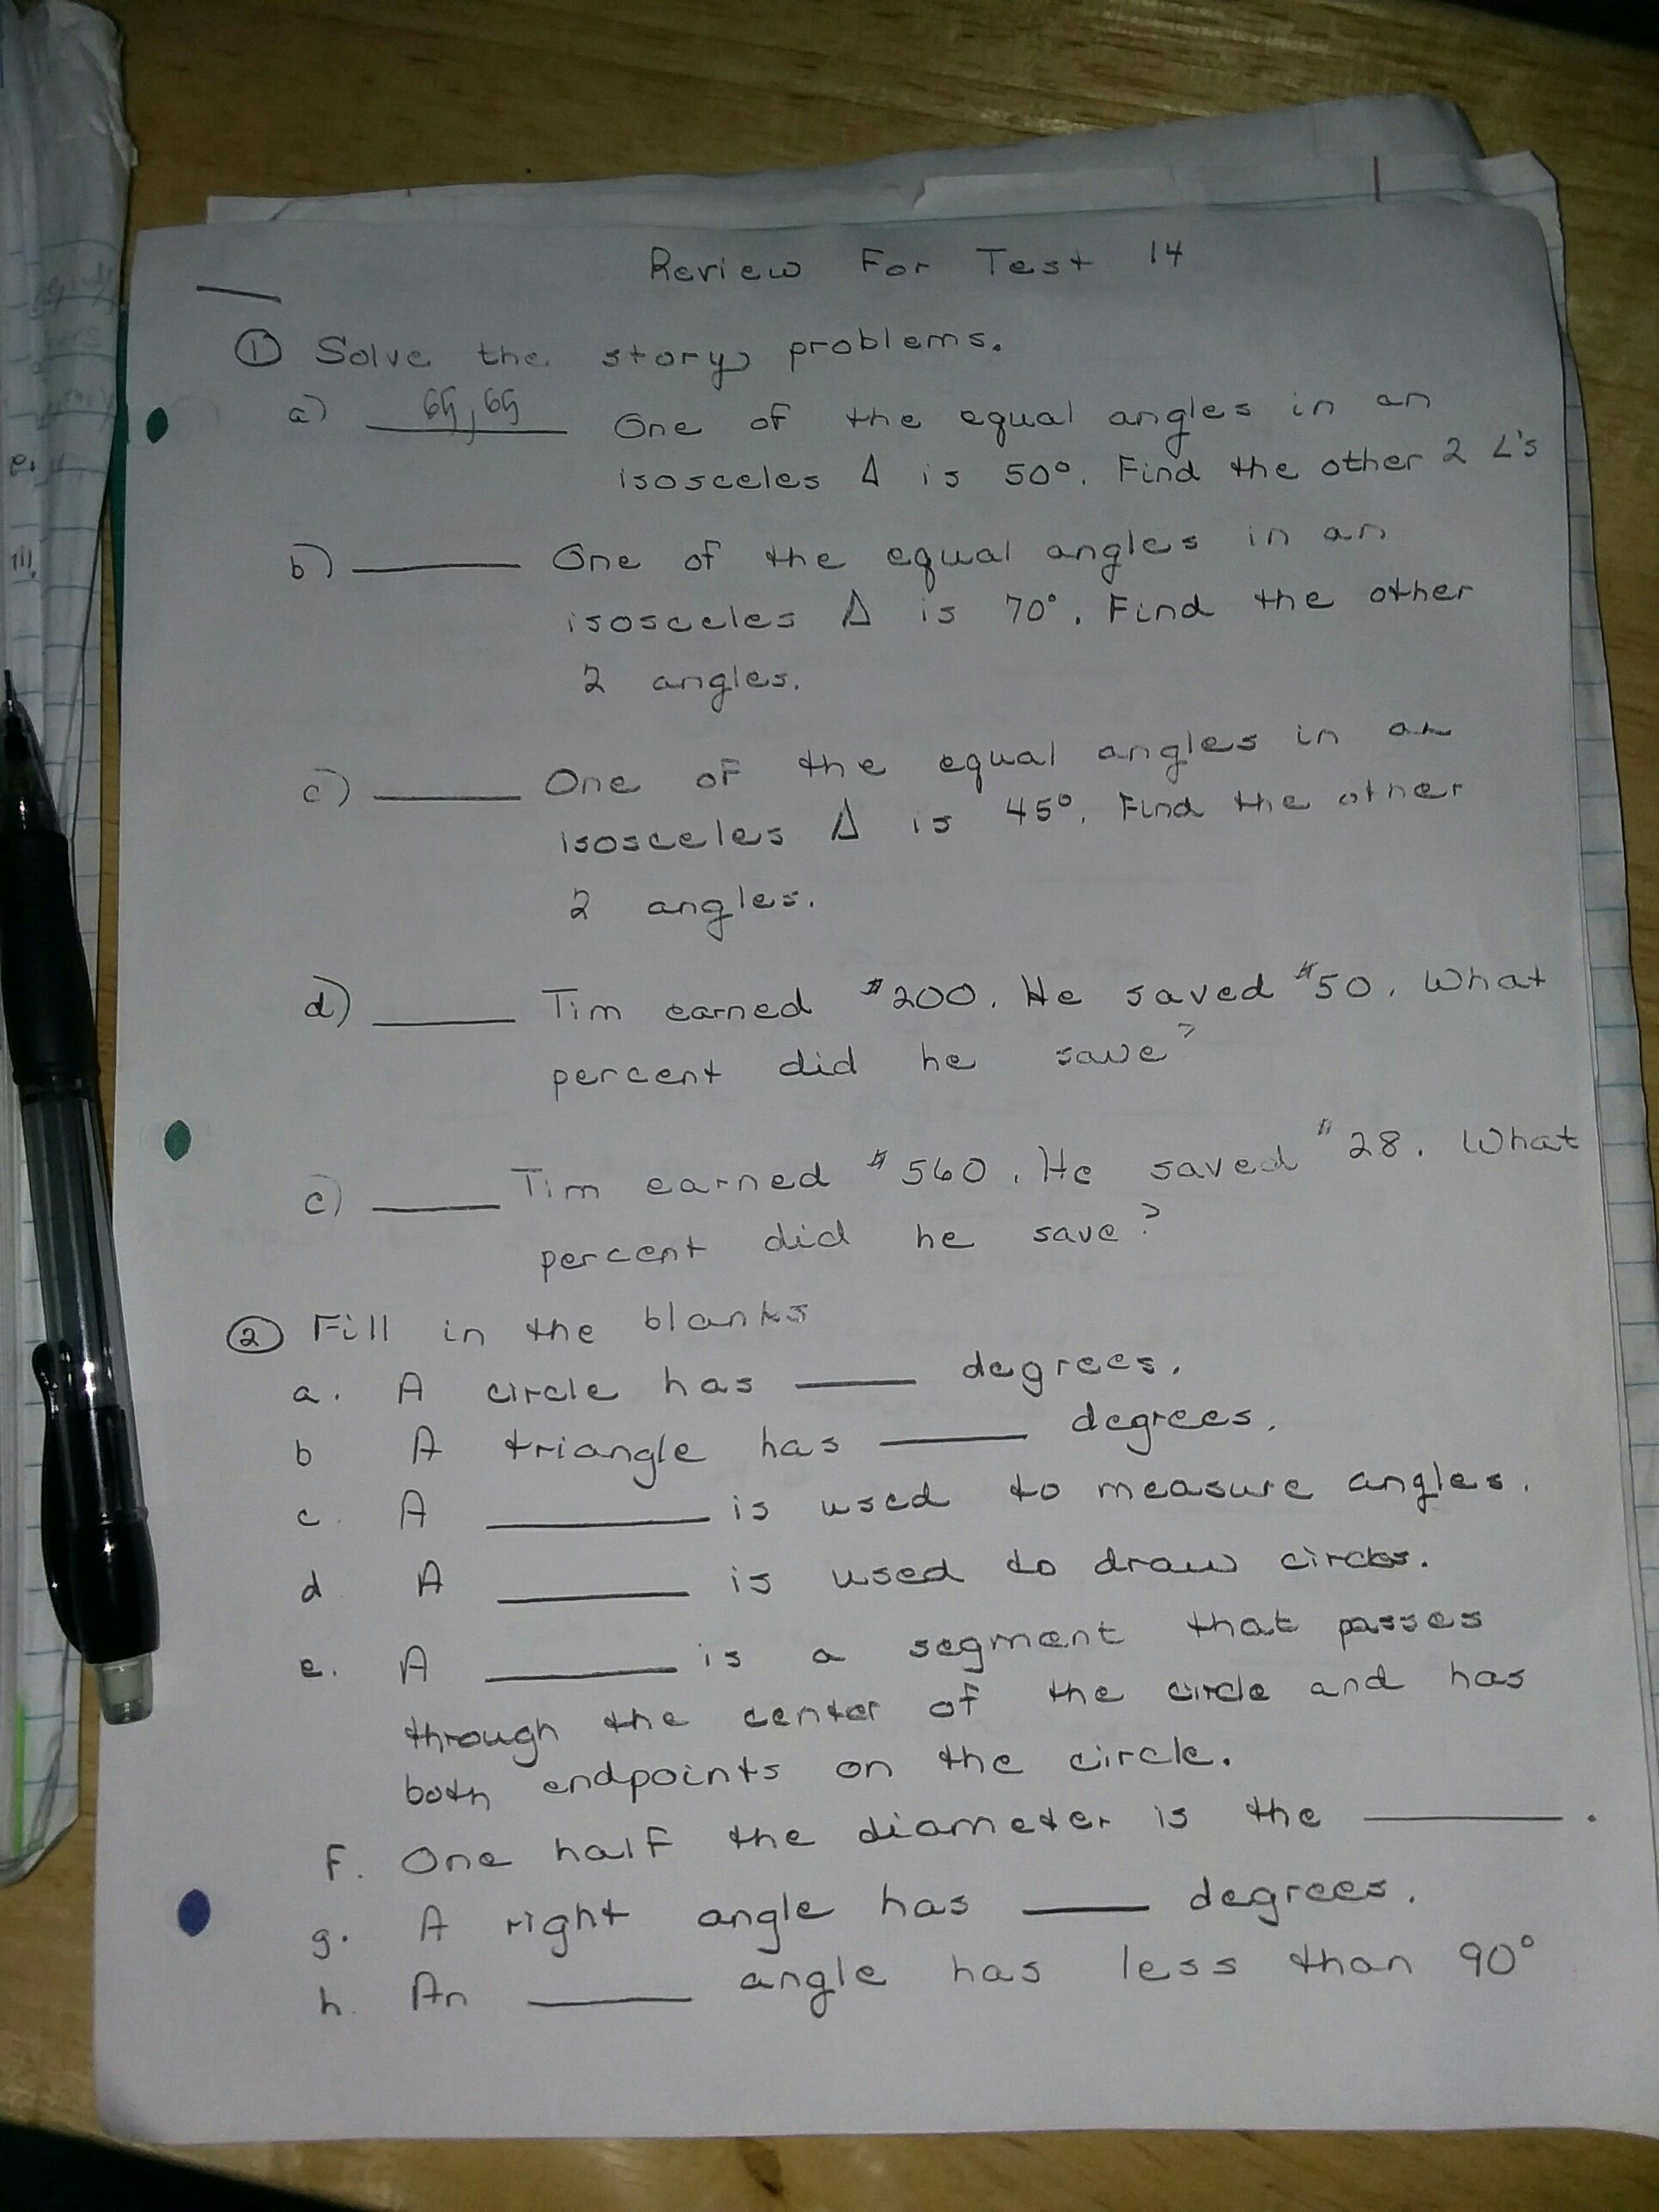 Review For Test 14
① Solve the story problems.
a) 65, 65 One of the equal angles in an
isosceles Δ is 50°. Find the other 2 ∠'s
b) ______ One of the equal angles in an
isosceles Δ is 70°. Find the other
2 angles.
c) ______ One of the equal angles in an
isosceles Δ is 45°. Find the other
2 angles.
d) ______ Tim earned $200. He saved $50. What
percent did he save?
e) ______ Tim earned $560. He saved $28. What
percent did he save?
② Fill in the blanks
a. A circle has ______ degrees.
b A triangle has ______ degrees.
c. A ______ is used to measure angles.
d A ______ is used to draw circles.
e. A ______ is a segment that passes
through the center of the circle and has
both endpoints on the circle.
F. One half the diameter is the ______.
g. A right angle has ______ degrees.
h. An ______ angle has less than 90°